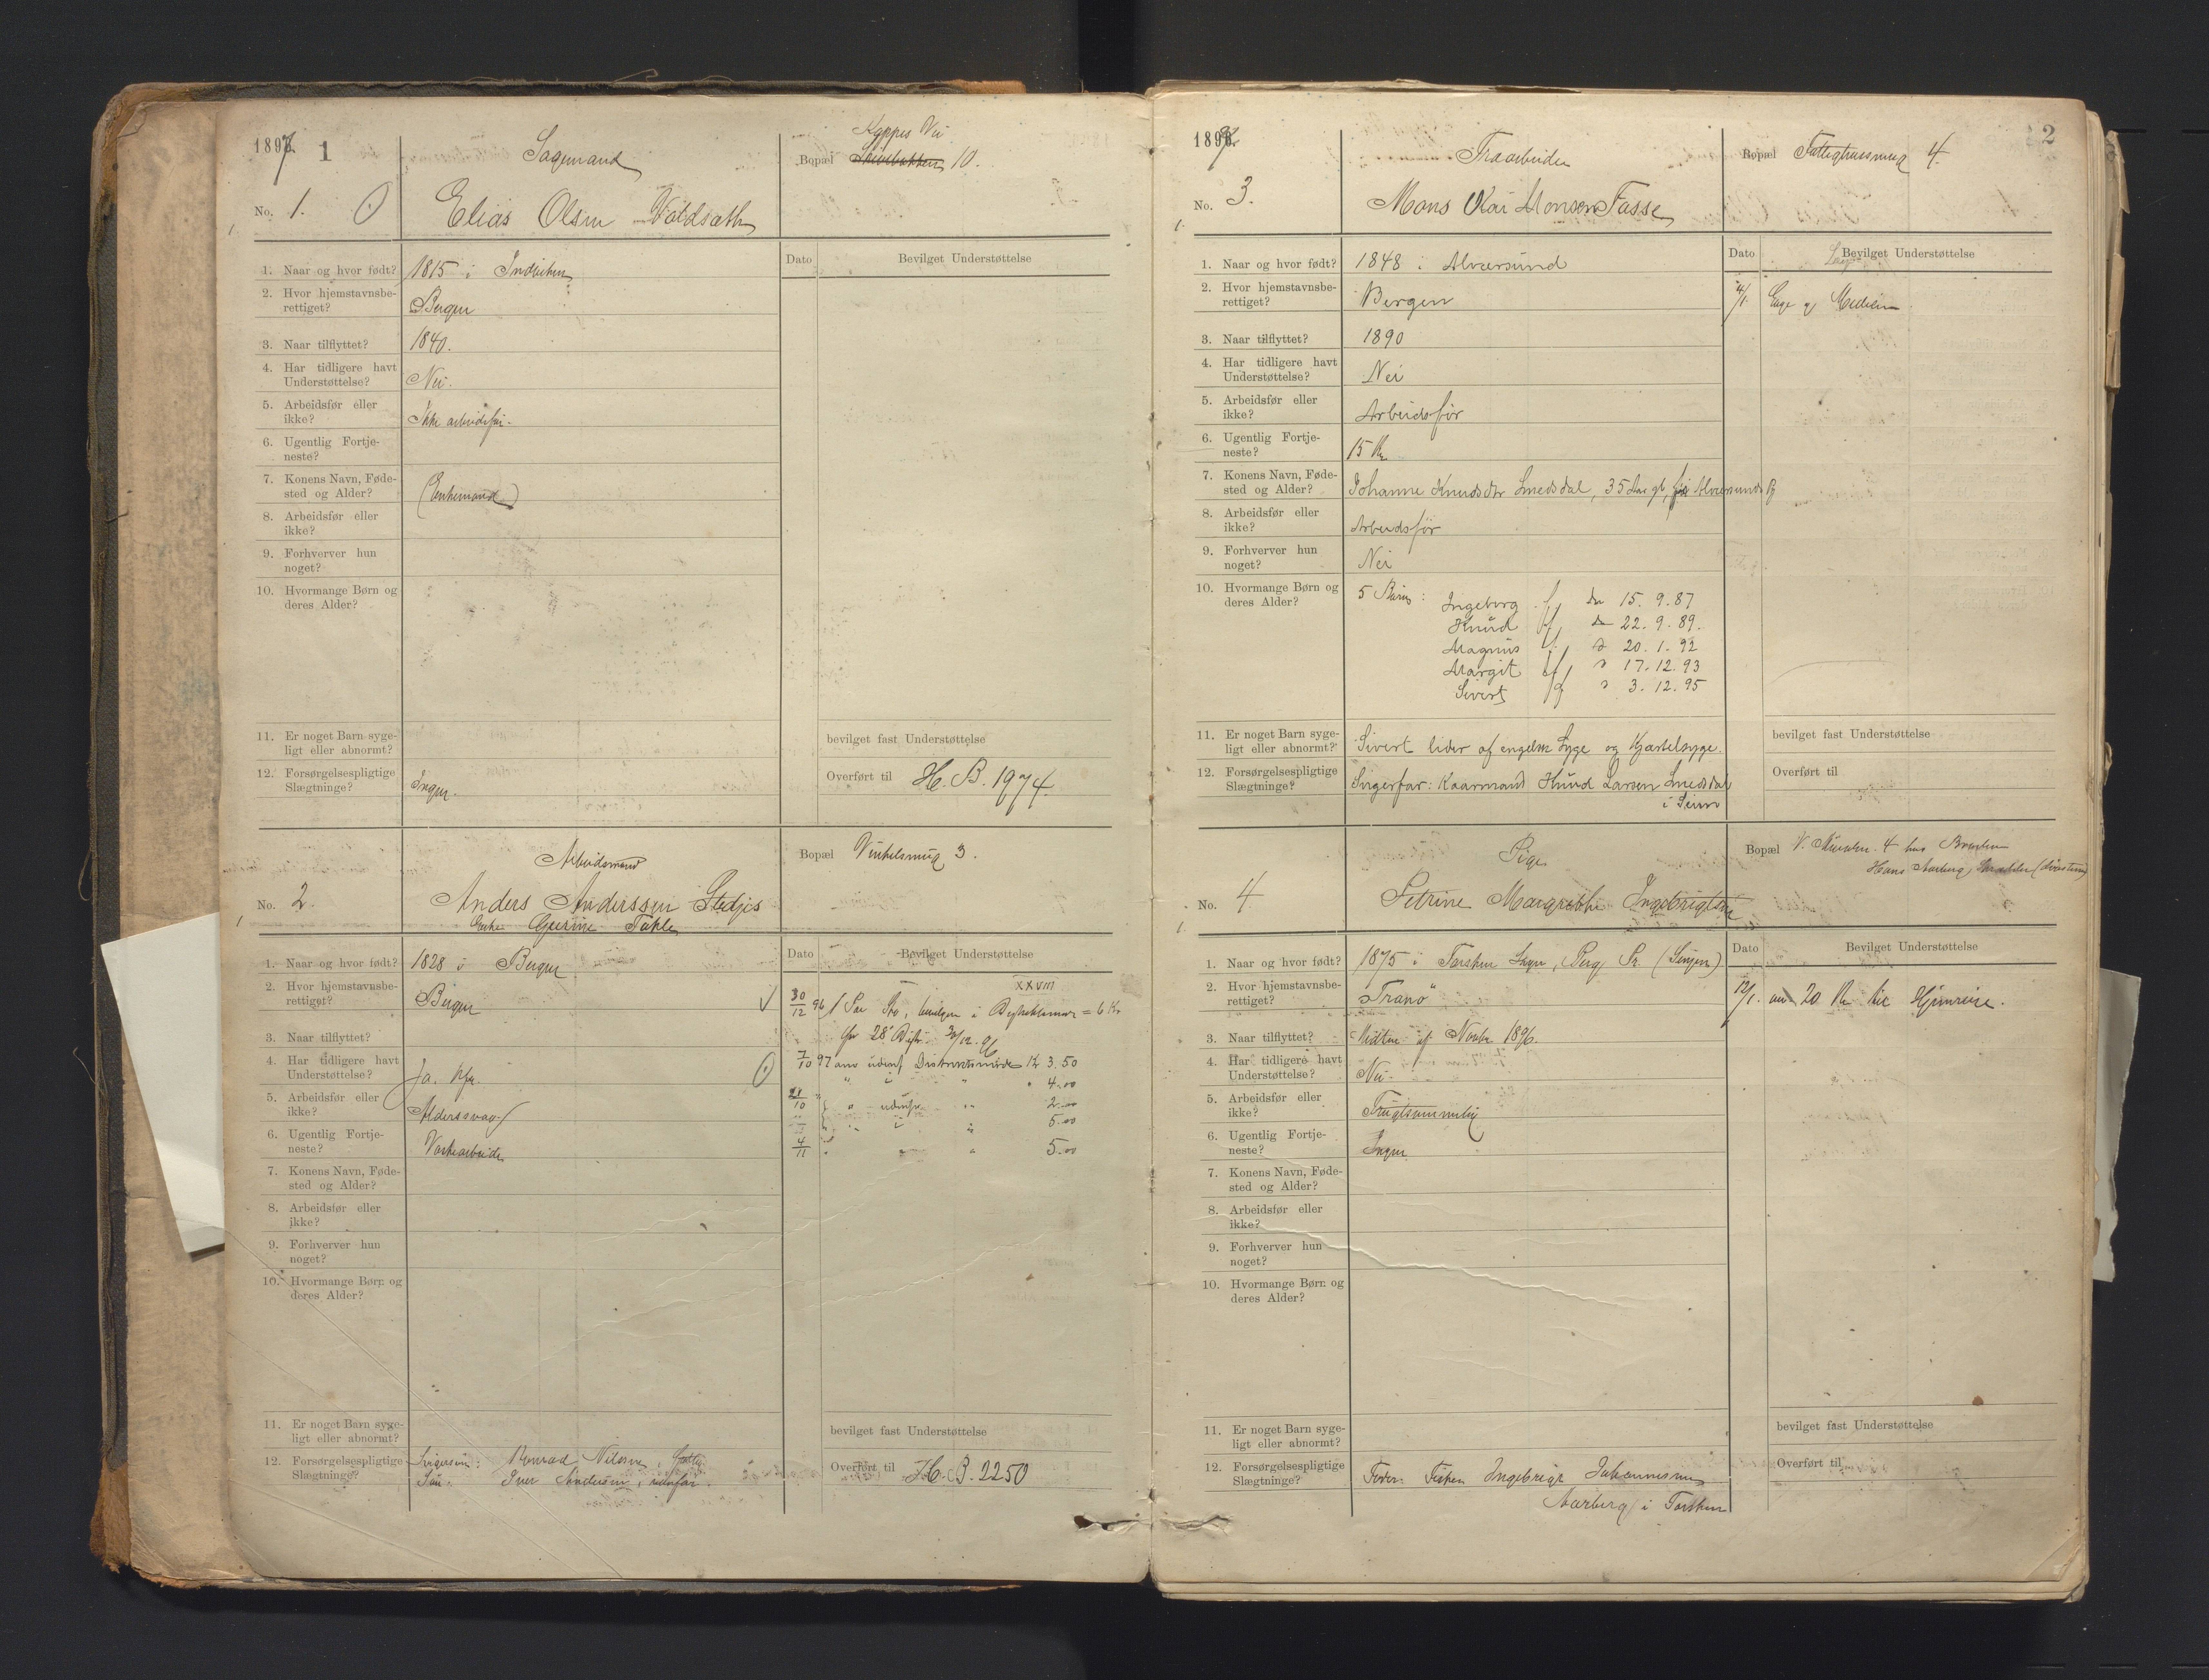 1897 1
Sagmand
Kippes Vei
Bopæl 10.
No. 1.
Elias Olsen Voldsæth
1. Naar og hvor født? 1815 i Indviken
Dato Bevilget Understøttelse
2. Hvor hjemstavnsbe-
rettiget? Bergen
3. Naar tilflyttet? 1840.
4. Har tidligere havt
Understøttelse? Nei.
5. Arbeidsfør eller
ikke? Ikke arbeidsfør.
6. Ugentlig Fortje-
neste?
7. Konens Navn, Føde-
sted og Alder? (Enkemand)
8. Arbeidsfør eller
ikke?
9. Forhverver hun
noget?
10. Hvormange Børn og
deres Alder?
11. Er noget Barn syge-
ligt eller abnormt?
bevilget fast Understøttelse
12. Forsørgelsespligtige
Slægtninge? Ingen.
Overført til H. B. 1974.
Arbeidsmand
Bopæl Vinkelsmug 3.
No. 2.
Anders Anderssen Stedjes
Enke Gurine Takle
1. Naar og hvor født? 1828 i Bergen
Dato Bevilget Understøttelse
2. Hvor hjemstavnsbe-
rettiget? Bergen
XXVIII
30/12 96 1 Par Sko, bevilgen i = 6 Kr
28' 30/12 96
3. Naar tilflyttet?
4. Har tidligere havt
Understøttelse? Ja.
7/10 97 Kr 3.50
" 4.00
5. Arbeidsfør eller
ikke? Alderssvag
21/10 " " 2.00
5.00
6. Ugentlig Fortje-
neste? Vaskearbeide
4/11 " " 5.00
7. Konens Navn, Føde-
sted og Alder?
8. Arbeidsfør eller
ikke?
9. Forhverver hun
noget?
10. Hvormange Børn og
deres Alder?
11. Er noget Barn syge-
ligt eller abnormt?
bevilget fast Understøttelse
12. Forsørgelsespligtige
Slægtninge? Svigersøn: Konrad Nilssen,
Søn: Iver Andersen,
Overført til H. B. 2250
1897 2
Træarbeider
Bopæl Fattighussmug 4.
No. 3.
Mons Kai Monsen Fosse
1. Naar og hvor født? 1848 i Alversund
Dato Bevilget Understøttelse
2. Hvor hjemstavnsbe-
rettiget? Bergen
4/1. Læge og Medicin
3. Naar tilflyttet? 1890
4. Har tidligere havt
Understøttelse? Nei
5. Arbeidsfør eller
ikke? Arbeidsfør
6. Ugentlig Fortje-
neste? 15 Kr
7. Konens Navn, Føde-
sted og Alder? Johanne Knudsdtr Smedsdal, 35 Aar gl, Alversund
8. Arbeidsfør eller
ikke? Arbeidsfør
9. Forhverver hun
noget? Nei
10. Hvormange Børn og
deres Alder? 5 Børn: Ingeborg f. den 15. 9. 87
Knud f. 22. 9. 89.
Magnus f. 20. 1. 92
Margit f. 17. 12. 93
Sivert f. 3. 12. 95
11. Er noget Barn syge-
ligt eller abnormt? Sivert lider af engelsk Syge og Kjertelsyge.
bevilget fast Understøttelse
12. Forsørgelsespligtige
Slægtninge? Svigerfar: Kaarmand Knud Larsen Smedsdal
i Seim
Overført til
Pige
Bopæl 4 hos
Hans Aarberg,
No. 4
Petrine Margrethe Ingebrigtsen
1. Naar og hvor født? 1875 i Torsken Sogn, Berg Pr. (Senjen)
Dato Bevilget Understøttelse
2. Hvor hjemstavnsbe-
rettiget? "Tranø"
12/1. 20 Kr til Hjemreise.
3. Naar tilflyttet? Midten af Novbr 1896.
4. Har tidligere havt
Understøttelse? Nei.
5. Arbeidsfør eller
ikke? Frugtsommelig
6. Ugentlig Fortje-
neste? Ingen
7. Konens Navn, Føde-
sted og Alder?
8. Arbeidsfør eller
ikke?
9. Forhverver hun
noget?
10. Hvormange Børn og
deres Alder?
11. Er noget Barn syge-
ligt eller abnormt?
bevilget fast Understøttelse
12. Forsørgelsespligtige
Slægtninge? Fader: Fisker Ingebrigt Johannesen
Aarberg i Torsken
Overført til